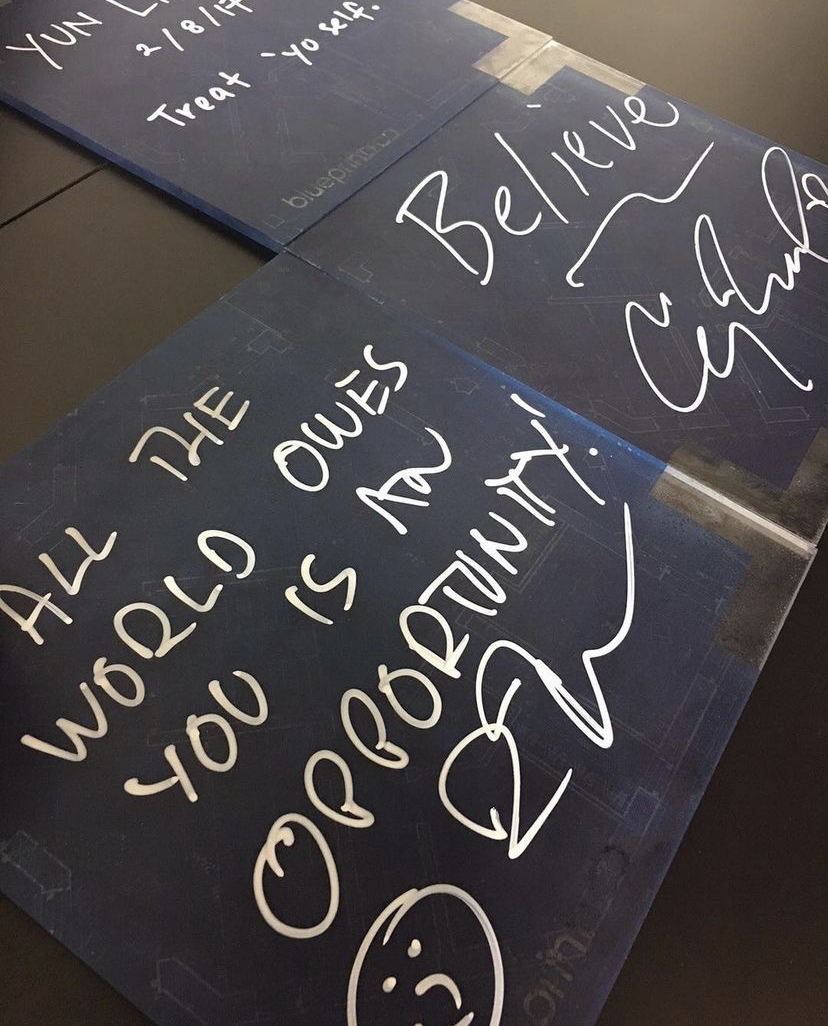 YUN
2/8/17
Treat 'yo self.
blueprint
Believe
ALL THE
WORLD OWES
YOU IS AN
OPPORTUNITY!